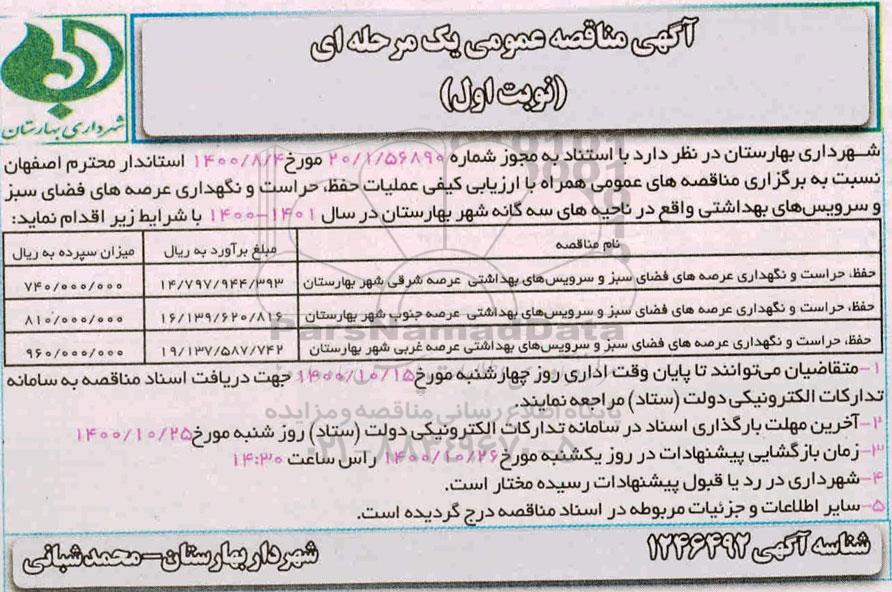 آگهی مناقصه عمومی یک مرحله ای
(نوبت اول)
شهرداری بهارستان
شهرداری بهارستان در نظر دارد با استناد به مجوز شماره ۲۰/۱/۵۶۸۹۰ مورخ ۱۴۰۰/۸/۴ استاندار محترم اصفهان
نسبت به برگزاری مناقصه های عمومی همراه با ارزیابی کیفی عملیات حفظ، حراست و نگهداری عرصه های فضای سبز
و سرویس‌های بهداشتی واقع در ناحیه های سه گانه شهر بهارستان در سال ۱۴۰۱-۱۴۰۰ با شرایط زیر اقدام نماید:
نام مناقصه مبلغ برآورد به ریال میزان سپرده به ریال
حفظ، حراست و نگهداری عرصه های فضای سبز و سرویس‌های بهداشتی عرصه شرقی شهر بهارستان ۱۴/۷۹۷/۹۴۴/۳۹۳ ۷۴۰/۰۰۰/۰۰۰
حفظ، حراست و نگهداری عرصه های فضای سبز و سرویس‌های بهداشتی عرصه جنوب شهر بهارستان ۱۶/۱۳۹/۶۲۰/۸۱۶ ۸۱۰/۰۰۰/۰۰۰
حفظ، حراست و نگهداری عرصه های فضای سبز و سرویس‌های بهداشتی عرصه غربی شهر بهارستان ۱۹/۱۳۷/۵۸۷/۷۴۲ ۹۶۰/۰۰۰/۰۰۰
۱-متقاضیان می‌توانند تا پایان وقت اداری روز چهارشنبه مورخ ۱۴۰۰/۱۰/۱۵ جهت دریافت اسناد مناقصه به سامانه
تدارکات الکترونیکی دولت (ستاد) مراجعه نمایند.
۲-آخرین مهلت بارگذاری اسناد در سامانه تدارکات الکترونیکی دولت (ستاد) روز شنبه مورخ ۱۴۰۰/۱۰/۲۵
۳-زمان بازگشایی پیشنهادات در روز یکشنبه مورخ ۱۴۰۰/۱۰/۲۶ راس ساعت ۱۴:۳۰
۴-شهرداری در رد یا قبول پیشنهادات رسیده مختار است.
۵-سایر اطلاعات و جزئیات مربوطه در اسناد مناقصه درج گردیده است.
شناسه آگهی ۱۲۴۶۴۹۲
شهردار بهارستان-محمد شبانی
ParsNamadData
پایگاه اطلاع رسانی مناقصه و مزایده